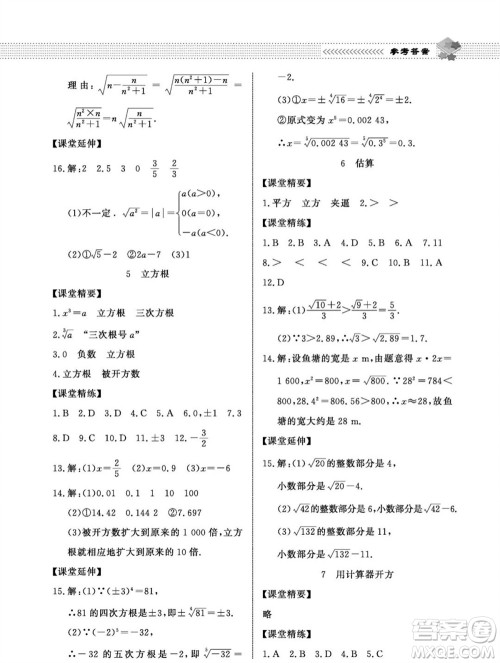 参考答案
理由:√(n-n/(n²+1))=√((n(n²+1)-n)/(n²+1))=
√((n²×n)/(n²+1))=n√(n/(n²+1)).
【课堂延伸】
16.解:2 2.5 0 3/5 3/2
(1)不一定.√a²=|a|={a(a>0),
0(a=0),
-a(a<0).
(2)①√5-2 ②2a-7 (3)1
5 立方根
【课堂精要】
1.x³=a 立方根 三次方根
2.∛a “三次根号a”
3.0 负数 立方根
4.立方根 被开方数
【课堂精练】
1.B 2.D 3.A 4.C 5.D 6.B 7.3
8.D 9.C 10.C 11.-3 12.-3/2
13.解:(1)x=2/5 (2)x=-4
14.解:(1)0.01 0.1 1 10 100
(2)①14.42 0.144 2 ②7.697
(3)被开方数扩大到原来的1 000倍,
立方根扩大到原来的10倍.
【课堂延伸】
15.解:(1)∵(±3)⁴=81,
∴81的四次方根是±3.
(2)∵(-2)⁵=-32,
∴-32的五次方根是
-2.
(3)①x=±⁴√16=±⁴√2⁴=±2.
②原式变为x⁵=0.002 43,
∴x=⁵√0.002 43=⁵√0.3⁵=0.3
6 估算
【课堂精要】
1.平方 立方 夹逼 2.> >
【课堂精练】
1.B 2.B 3.D 4.B 5.B 6.B 7.B
8.> < > < 9.> 10.4 11.A
12.D
13.解:(1)(√10+2)/3>(√9+2)/3=5/3.
(2)∵3>2.89,∴√3>√2.89=1.7.
14.解:设鱼塘的宽是x m,由题意得x·2x=
1 600,x²=800,x=√800.∴28<x<29.故鱼
塘的宽大约是28 m.
【课堂延伸】
15.解:(1)√20的整数部分是4,
小数部分是√20-4.
(2)√42的整数部分是6,
小数部分是√42-6.
(3)√132的整数部分是11,
小数部分是√132-11.
7 用计算器开方
【课堂精要】
略
【课堂精练】
1.C 2.D 3.C 4.A 5.B 6.B